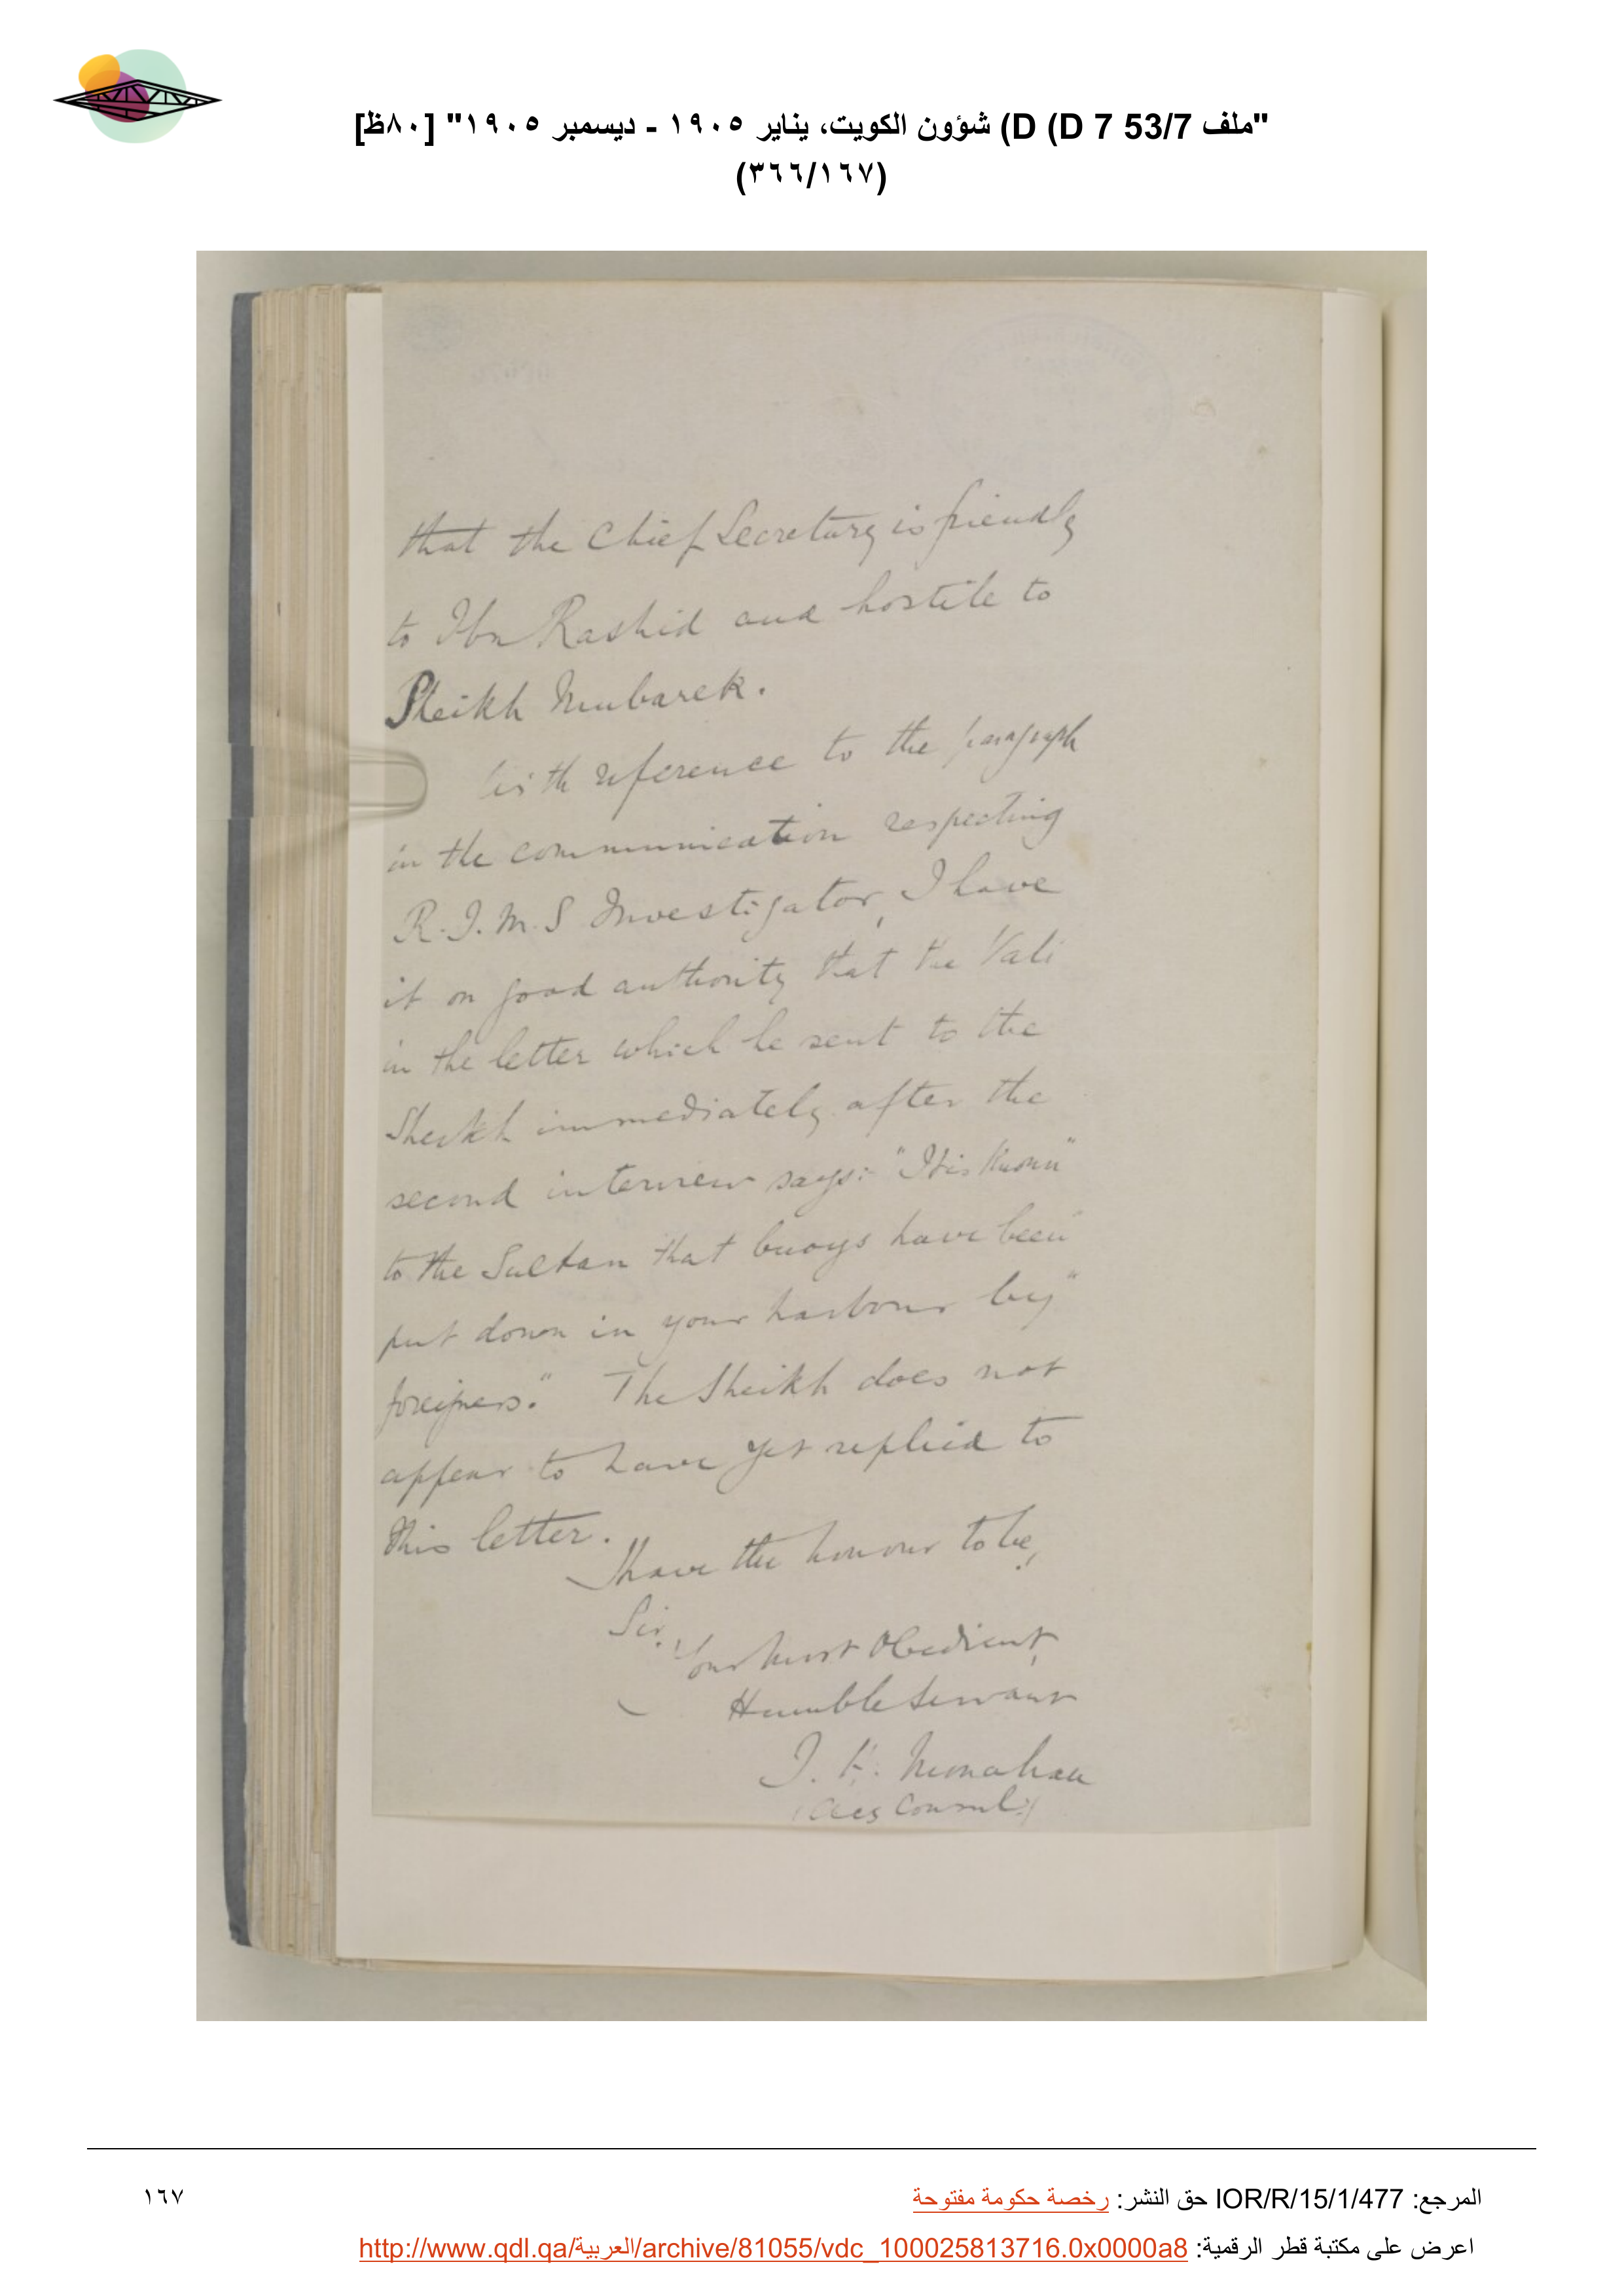 "ملف 53/7 D 7 D) D) شؤون الكويت، يناير ١٩٠٥ - ديسمبر ١٩٠٥" [٨٠ظ]
(٣٦٦/١٦٧)
that the Chief Secretary is friendly
to Ibn Rashid and hostile to
Sheikh Mubarek.
With reference to the paragraph
in the communication respecting
R.I.M.S Investigator, I have
it on good authority that the Vali
in the letter which he sent to the
Sheikh immediately after the
second interview says:- "It is known"
to the Sultan that buoys have been"
put down in your harbour by"
foreigners." The Sheikh does not
appear to have yet replied to
this letter.
I have the honour to be,
Sir,
Your most Obedient,
Humble Servant
J. H. Monahan
(Actg Consul.)
المرجع: IOR/R/15/1/477 حق النشر: رخصة حكومة مفتوحة
١٦٧
اعرض على مكتبة قطر الرقمية: http://www.qdl.qa/العربية/archive/81055/vdc_100025813716.0x0000a8